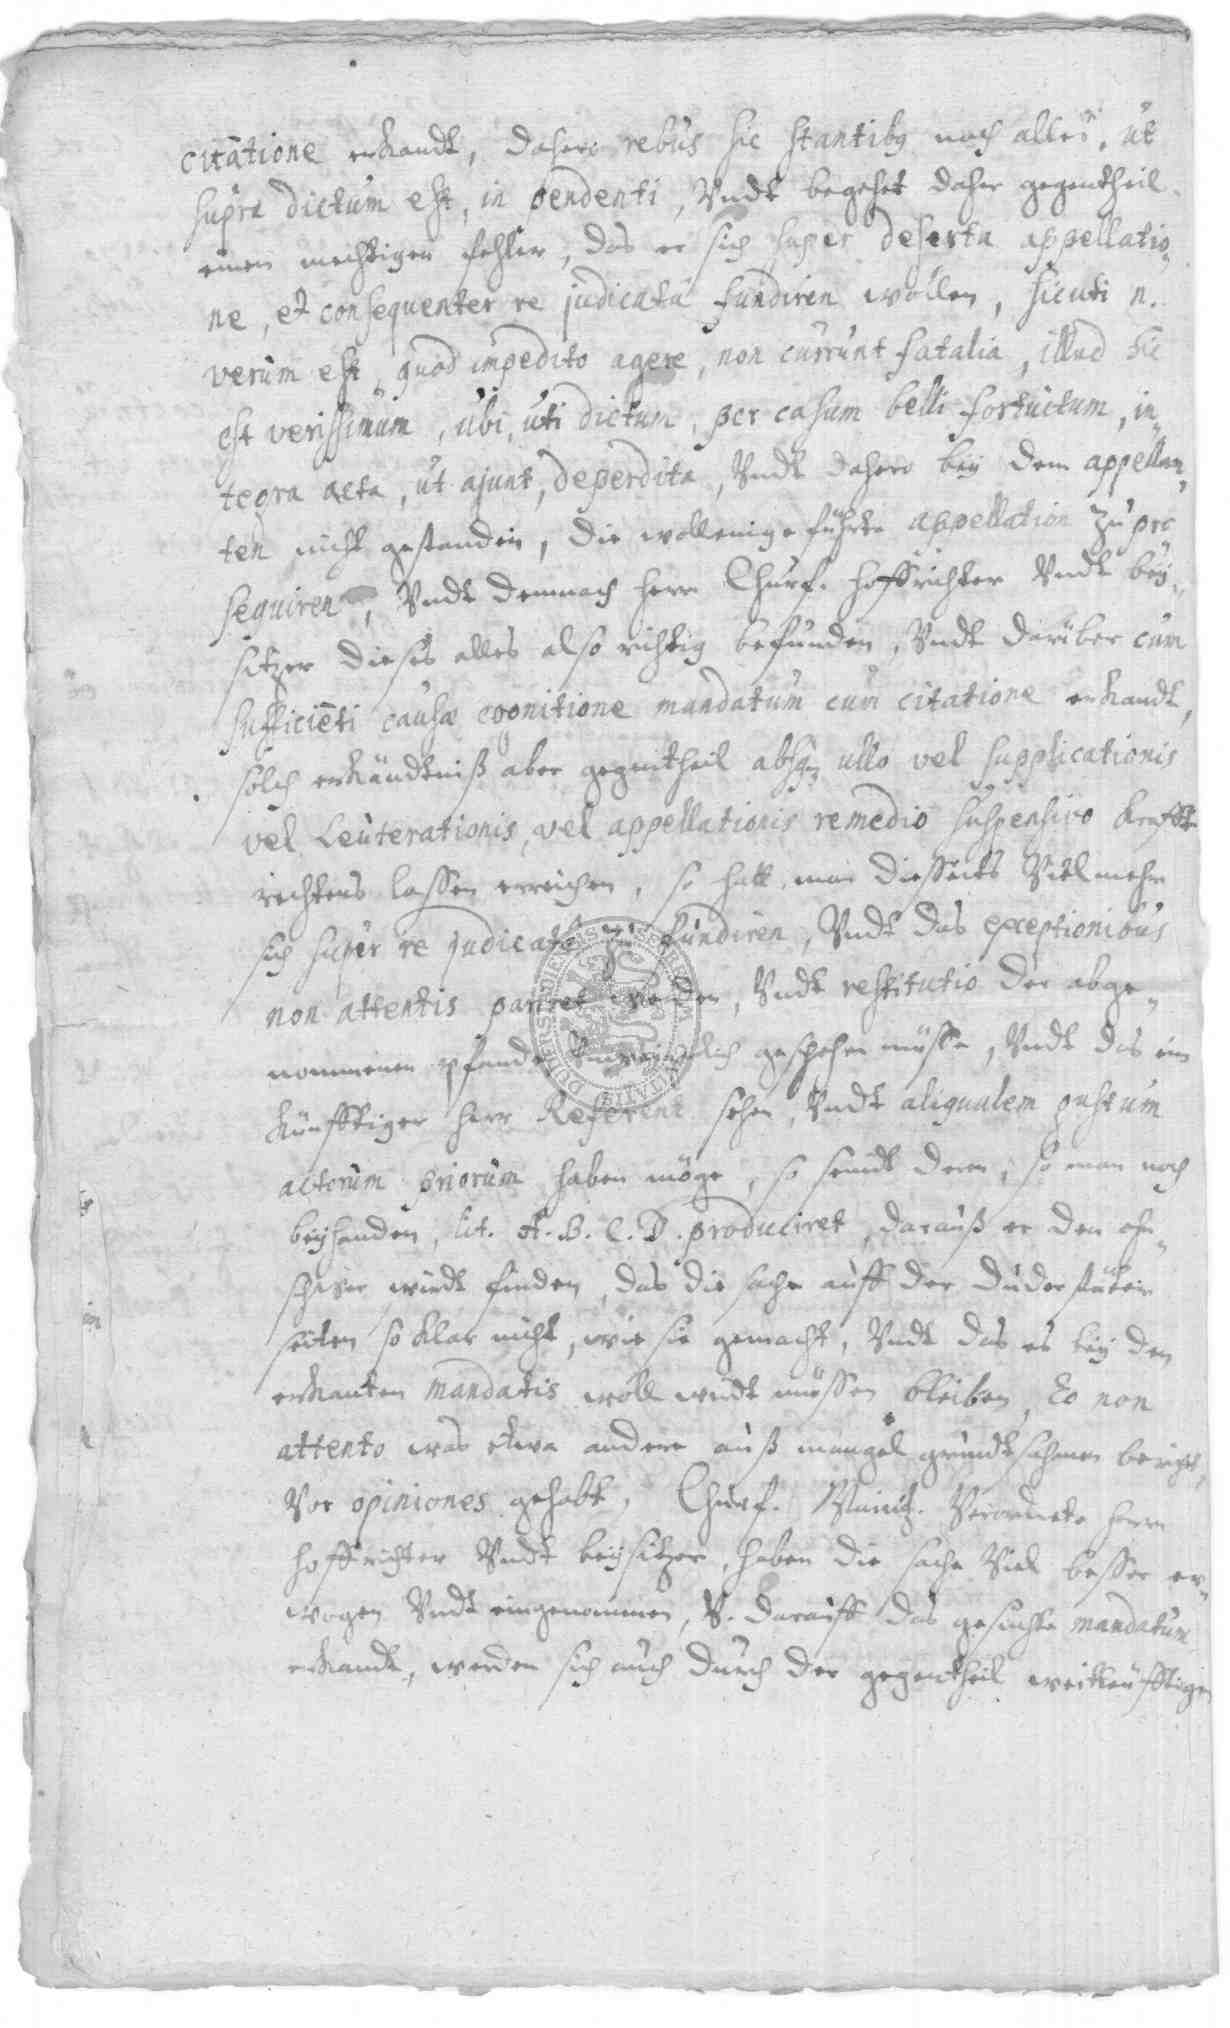 citatione erkandt, dahero rebus sic stantibg noch alles, ut
supra dictum est, in pendenti, Vndt begehet daher gegentheil
einen mechtigen fehler, das er sich super deserta appellatio„
ne, et consequenter re judicata fundiren wollen, sicuti n.
verum est, quod impedito agere, non currunt fatalia, illud hic
est verissimum, ubi, uti dictum, per casum belli fortuitum, in„
tegra acta, ut ajunt, deperdita, Vndt dahero bey dem appellan„
ten nicht gestanden, die wolleingeführte appellation zu pro
sequiren, Vndt demnach herr Churf. hoffrichter Vndt bey„
sitzer dieses alles also richtig befunden, Vndt darüber cum
sufficiēti causæ cognitione mandatum cum citatione erkandt,
solch erkändtniß aber gegentheil absq ullo vel supplicationis
vel Leuterationis, vel appellationis remedio suspensivo krafft
rechtens lassen erreichen, so hatt man diesseits Vielmehr
sich super re judicata zu fundiren, Vndt das exceptionibus
non attentis pariret werden, Vndt restitutio der abge„
nommenen pfande Vnweigerlich geschehen müsse, Vndt das ein
künfftiger herr Referent sehen, Vndt aliqualem gustum
actorum priorum haben möge, so seindt deren, so man noch
beyhanden, lit. A. B. C. D. produciret, darauß er den
wirdt finden, das die sache auff der Duderstäter
seiten so klar nicht, wie sie gemacht, Vndt das es bey den
erkanten mandatis woll wirdt müssen bleiben, Eo non
attento was etwa andere auß mangel gründtsahmen bericht,
Vor opiniones gehabt, Churf. Maintz. Verordnete herrn
hoffrichter Vndt beysitzer, haben die sache Viel besser er„
wogen Vndt eingenommen, V. darauff das gesuchte mandatum
erkandt, werden sich auch durch der gegentheil weitleufftigen
DUDERSTADIENSIS